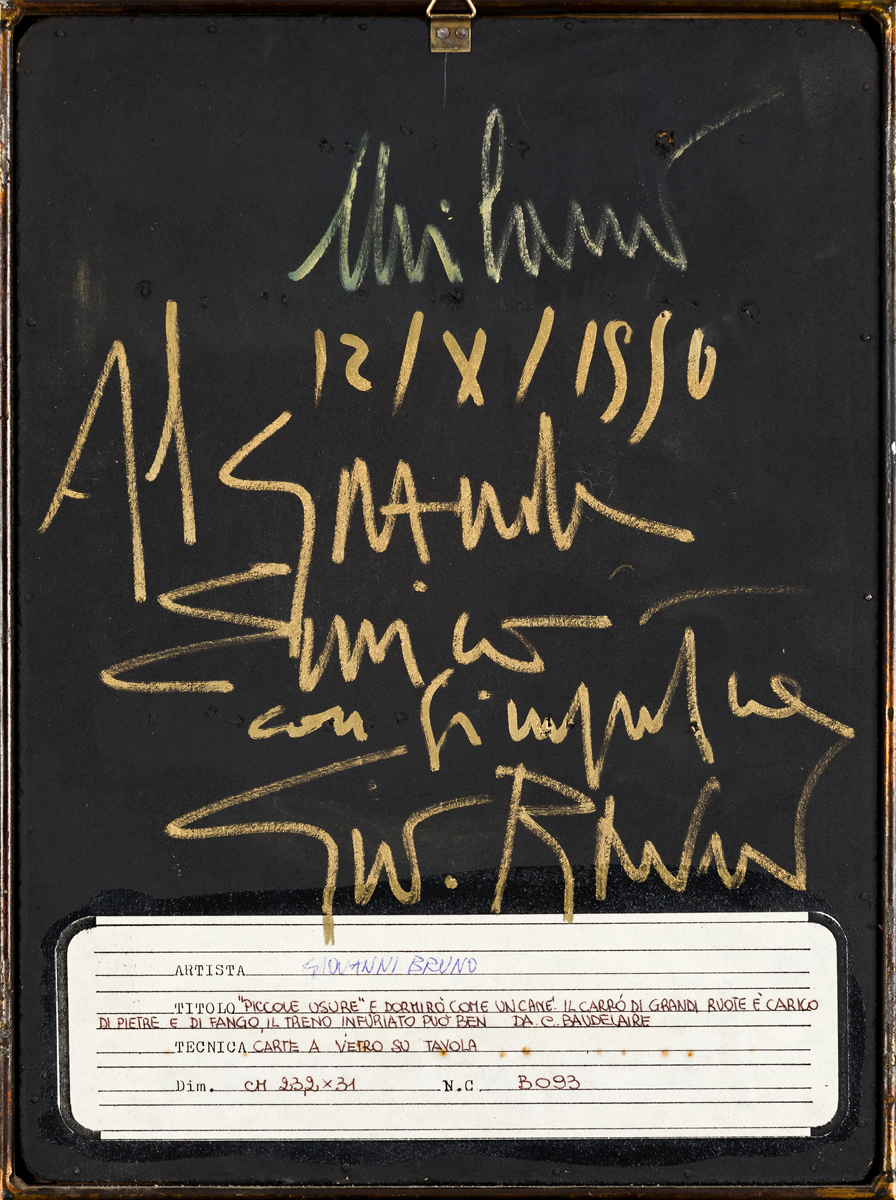 Milano
12/X/1990
Al Grande
Enrico
con Simpatia
Gio. Bruno
ARTISTA GIOVANNI BRUNO
TITOLO "PICCOLE USURE" E DORMIRÒ COME UN CANE'. IL CARRÓ DI GRANDI RUOTE È CARICO
DI PIETRE E DI FANGO, IL TRENO INFURIATO PUÒ BEN DA C. BAUDELAIRE
TECNICA CARTE A VETRO SU TAVOLA
Dim. CM 23,2 × 31 N.C. B093